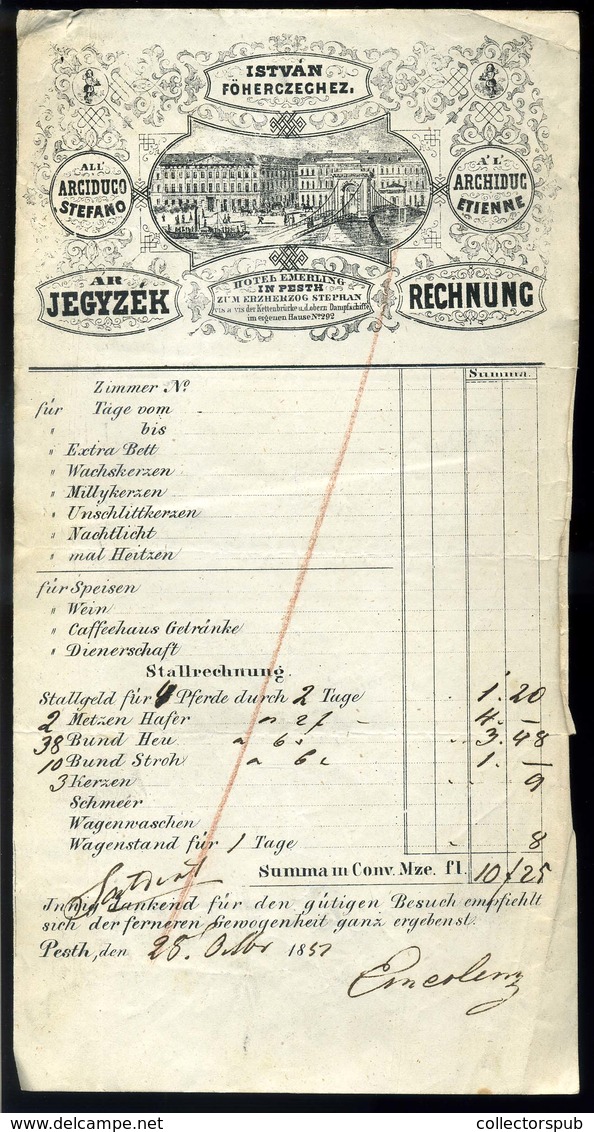 ISTVÁN
FŐHERCZEGHEZ.
ALL'
ARCIDUCO
STEFANO
A' L'
ARCHIDUC
ETIENNE
ÁR
JEGYZÉK
HOTEL EMERLING
IN PESTH
ZUM ERZHERZOG STEPHAN
vis a vis der Kettenbrücke u.d. obern Dampfschiffe
im eigenen Hause No 292
RECHNUNG
Summa.
Zimmer No.
für Täge vom
bis
" Extra Bett
" Wachskerzen
" Millykerzen
" Unschlittkerzen
" Nachtlicht
" mal Heitzen
für Speisen
" Wein
" Caffeehaus Getränke
" Dienerschaft
Stallrechnung.
Stallgeld für 4 Pferde durch 2 Tage 1. 20
2 Metzen Hafer a 2f 4. –
38 Bund Heu a 6 3. 48
10 Bund Stroh a 6 1. –
3 Kerzen 9
Schmeer
Wagenwaschen
Wagenstand für 1 Tage 8
Summa in Conv. Mze. fl. 10f 25
dankend für den gütigen Besuch empfiehlt
sich der ferneren Gewogenheit ganz ergebenst.
Pesth, den 28. Octbr 1851
Emerling
collectorspub